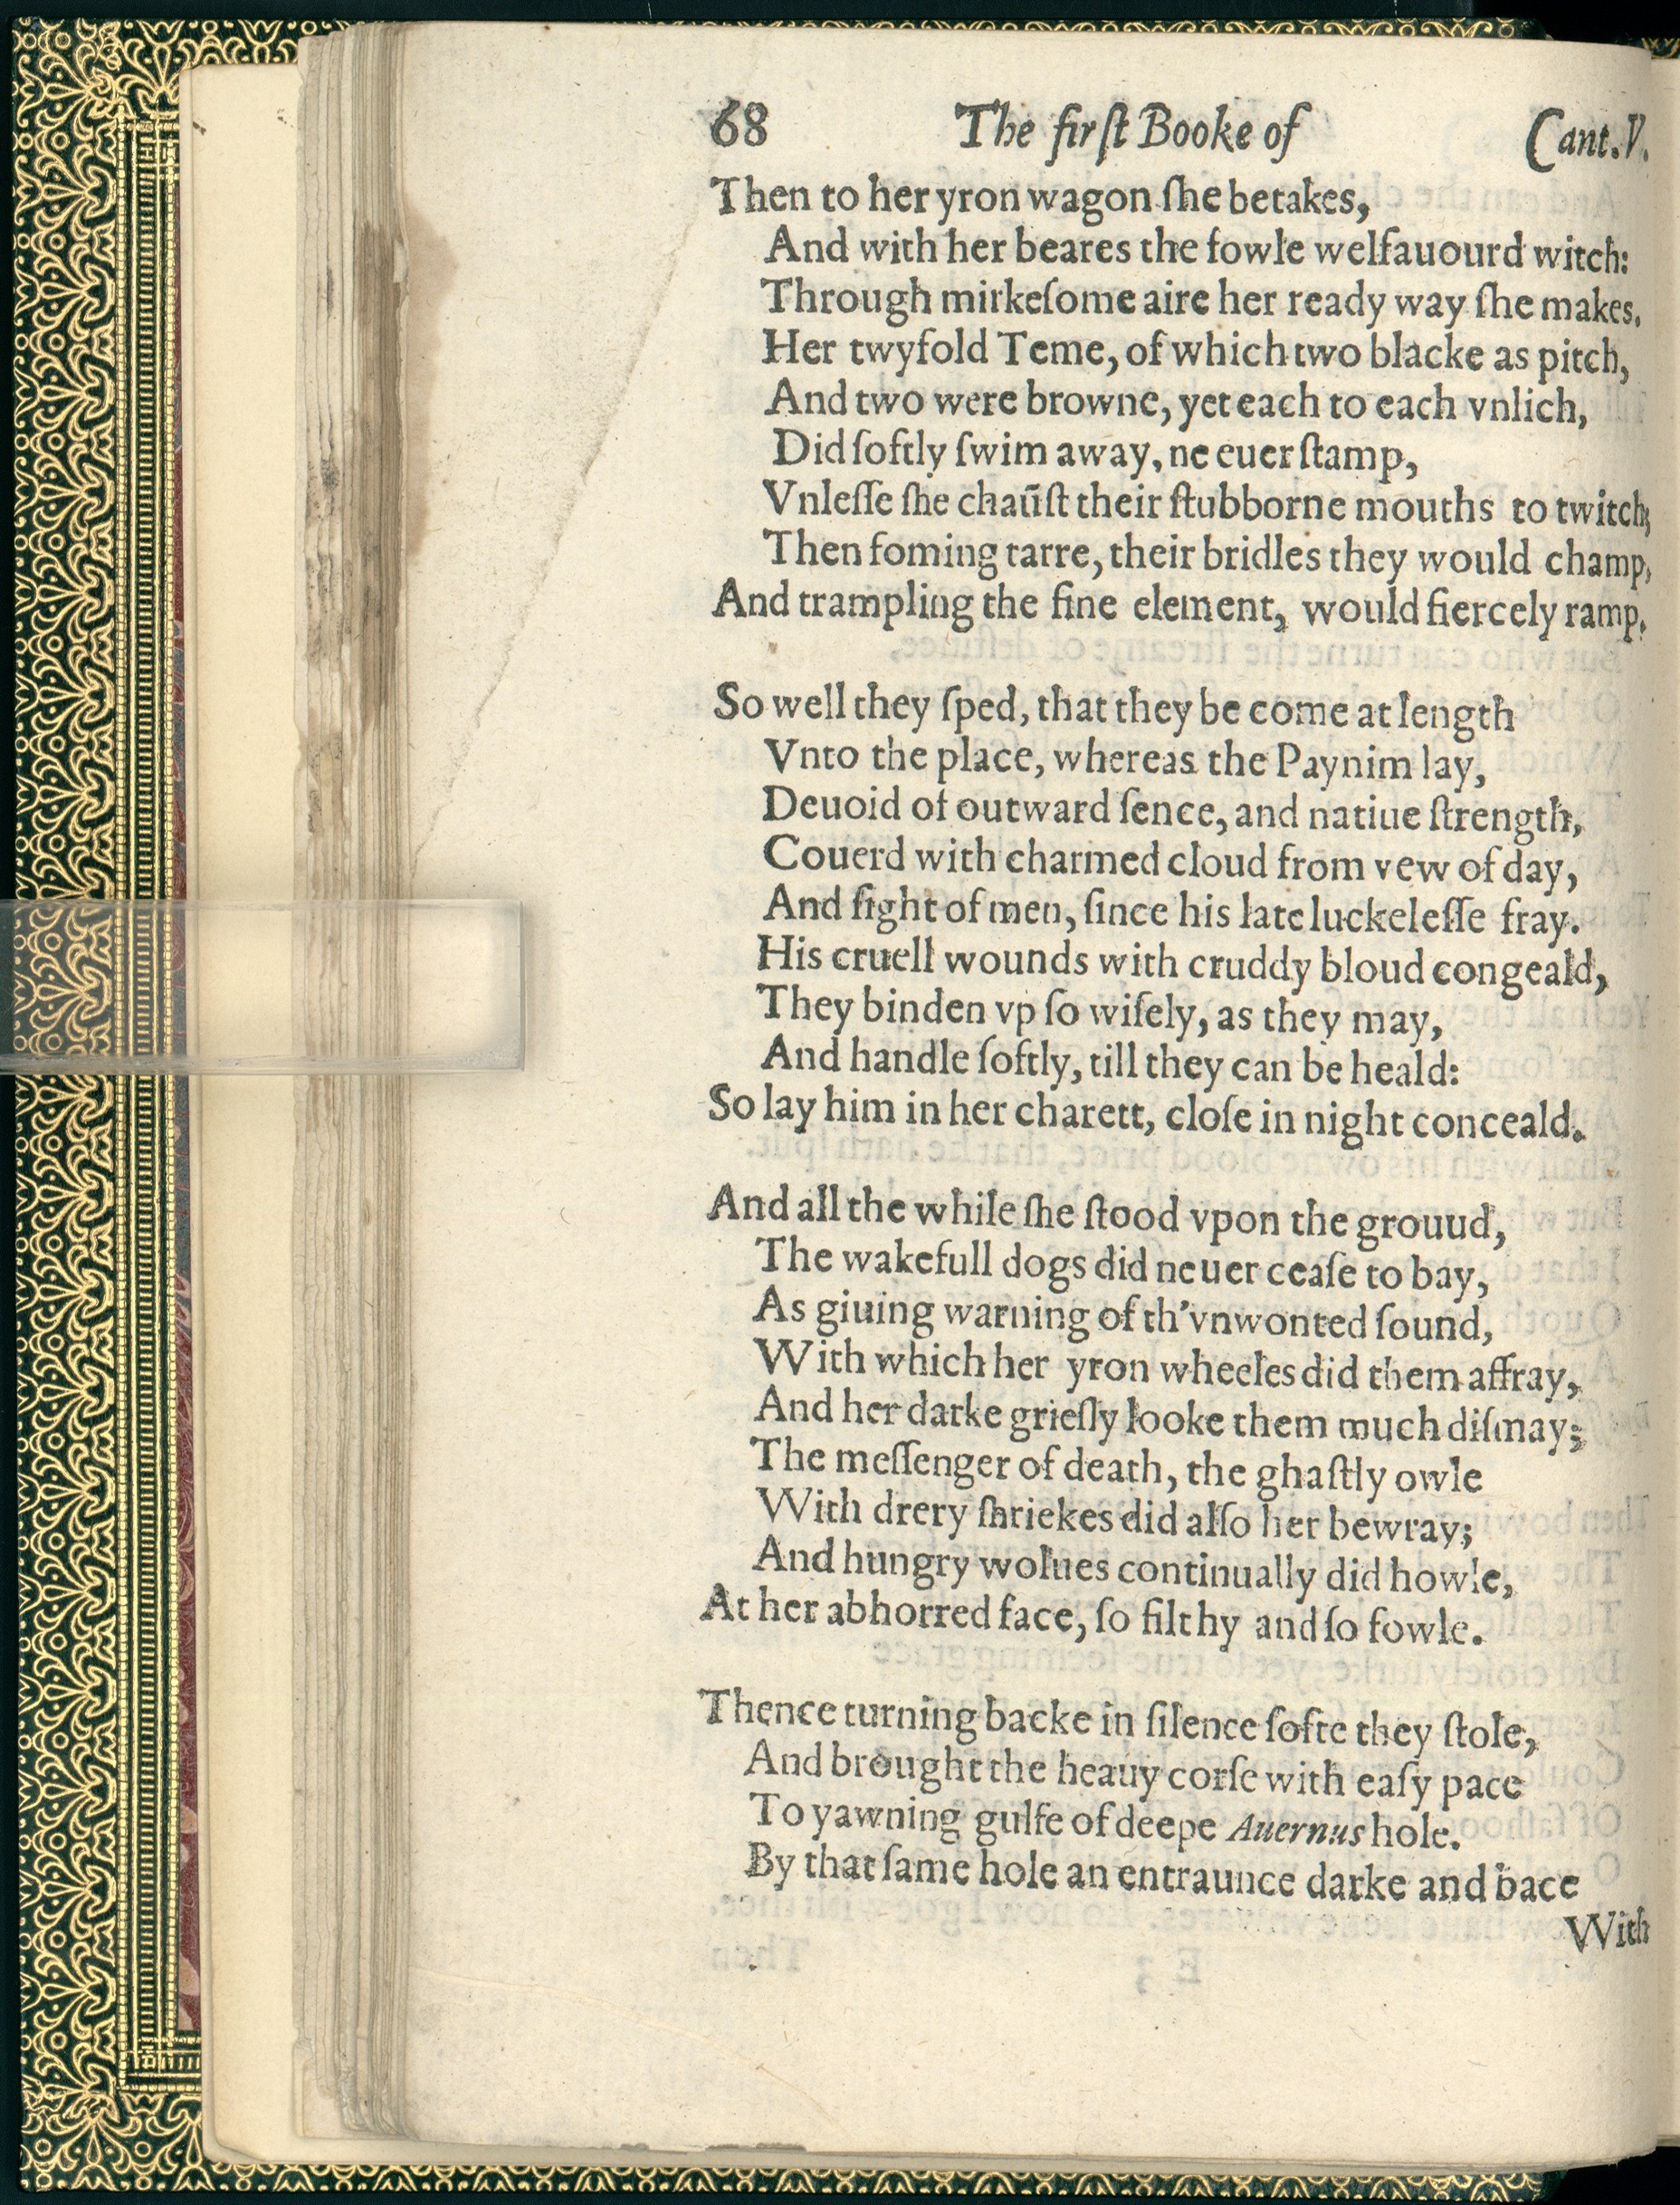 68 The firſt Booke of Cant.V.
Then to her yron wagon ſhe betakes,
And with her beares the fowle welfauourd witch:
Through mirkeſome aire her ready way ſhe makes.
Her twyfold Teme, of which two blacke as pitch,
And two were browne, yet each to each vnlich,
Did ſoftly ſwim away, ne euer ſtamp,
Vnleſſe ſhe chaūſt their ſtubborne mouths to twitch;
Then foming tarre, their bridles they would champ,
And trampling the fine element, would fiercely ramp.
So well they ſped, that they be come at length
Vnto the place, whereas the Paynim lay,
Deuoid of outward ſence, and natiue ſtrength,
Couerd with charmed cloud from vew of day,
And ſight of men, ſince his late luckeleſſe fray.
His cruell wounds with cruddy bloud congeald,
They binden vp ſo wiſely, as they may,
And handle ſoftly, till they can be heald:
So lay him in her charett, cloſe in night conceald.
And all the while ſhe ſtood vpon the grouud,
The wakefull dogs did neuer ceaſe to bay,
As giuing warning of th'vnwonted ſound,
With which her yron wheeles did them affray,
And her darke grieſly looke them much diſmay;
The meſſenger of death, the ghaſtly owle
With drery ſhriekes did alſo her bewray;
And hungry wolues continually did howle,
At her abhorred face, ſo filthy and ſo fowle.
Thence turning backe in ſilence ſofte they ſtole,
And brought the heauy corſe with eaſy pace
To yawning gulfe of deepe Auernus hole.
By that ſame hole an entraunce darke and bace
With